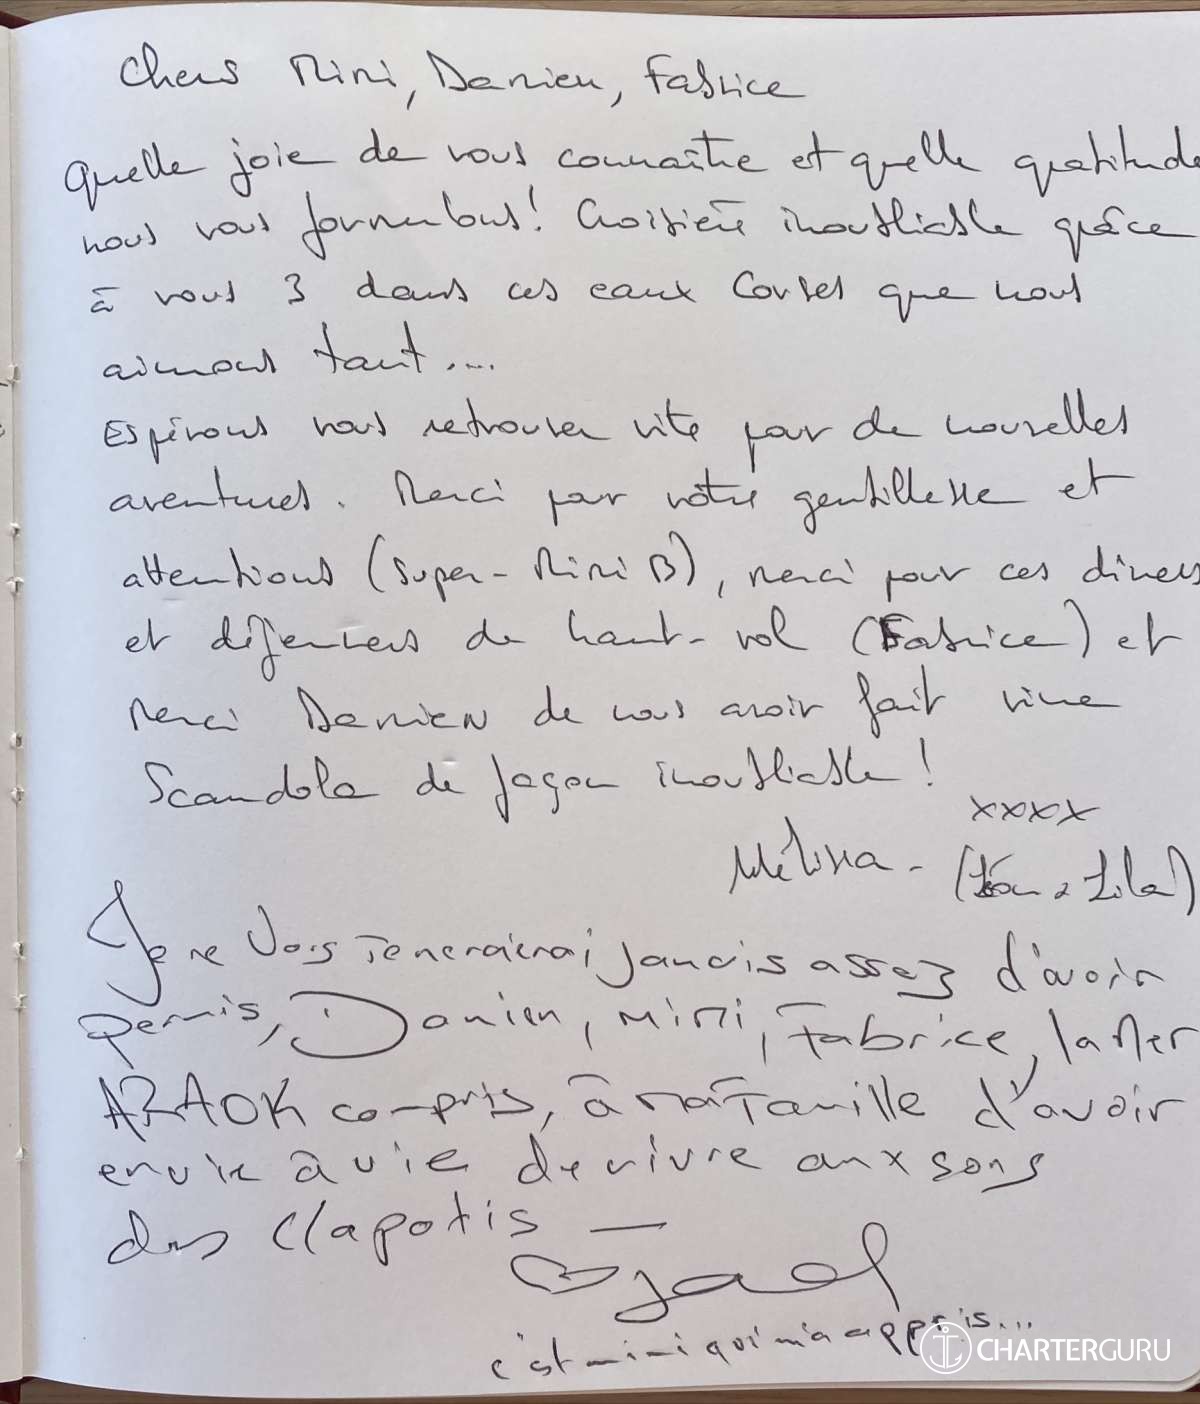 Chers Mimi, Damien, Fabrice
Quelle joie de vous connaître et quelle gratitude
nous vous formulons! Croisière inoubliable grâce
à vous 3 dans ces eaux Corses que nous
aimons tant....
Espérons vous retrouver vite pour de nouvelles
aventures. Merci pour votre gentillesse et
attentions (super-Mimi B), merci pour ces diners
et déjeuners de haut-vol (Fabrice) et
merci Damien de nous avoir fait vivre
Scandola de façon inoubliable!
xxxx
Mélissa - (Léon & Lila)
Je ne vous remercierai jamais assez d'avoir
permis, Damien, Mimi, Fabrice, la Mer
ARAOK compris, à ma Famille d'avoir
envie à vie de vivre aux sons
des clapotis —
c'est mimi qui m'a appris...
CHARTERGURU